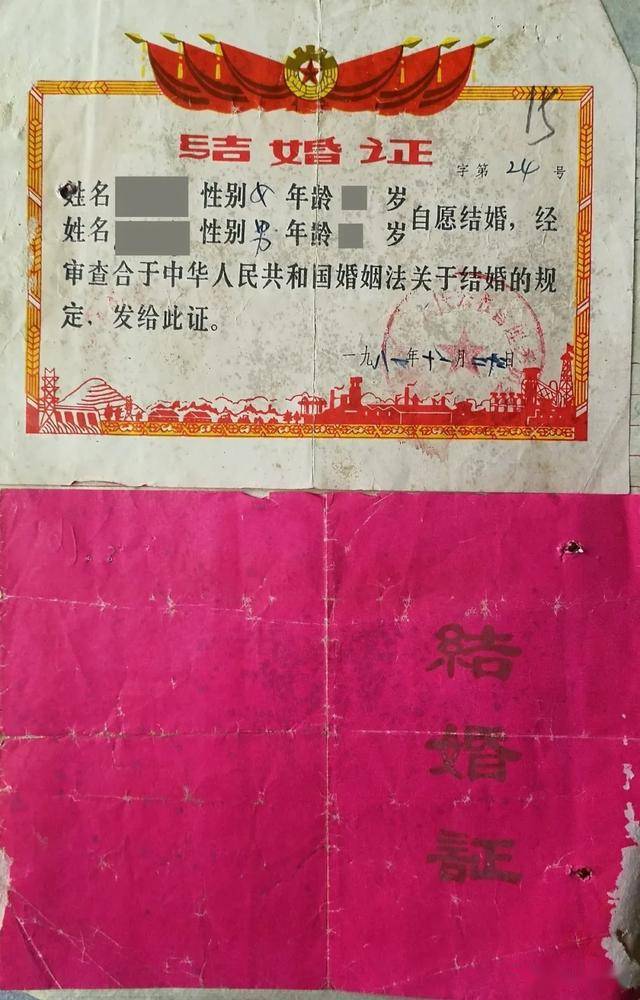 15
结婚证
字第 24 号
姓名 性别 女 年龄 岁
姓名 性别 男 年龄 岁 自愿结婚，经
审查合于中华人民共和国婚姻法关于结婚的规
定，发给此证。
一九八一年十一月 日
結
婚
証